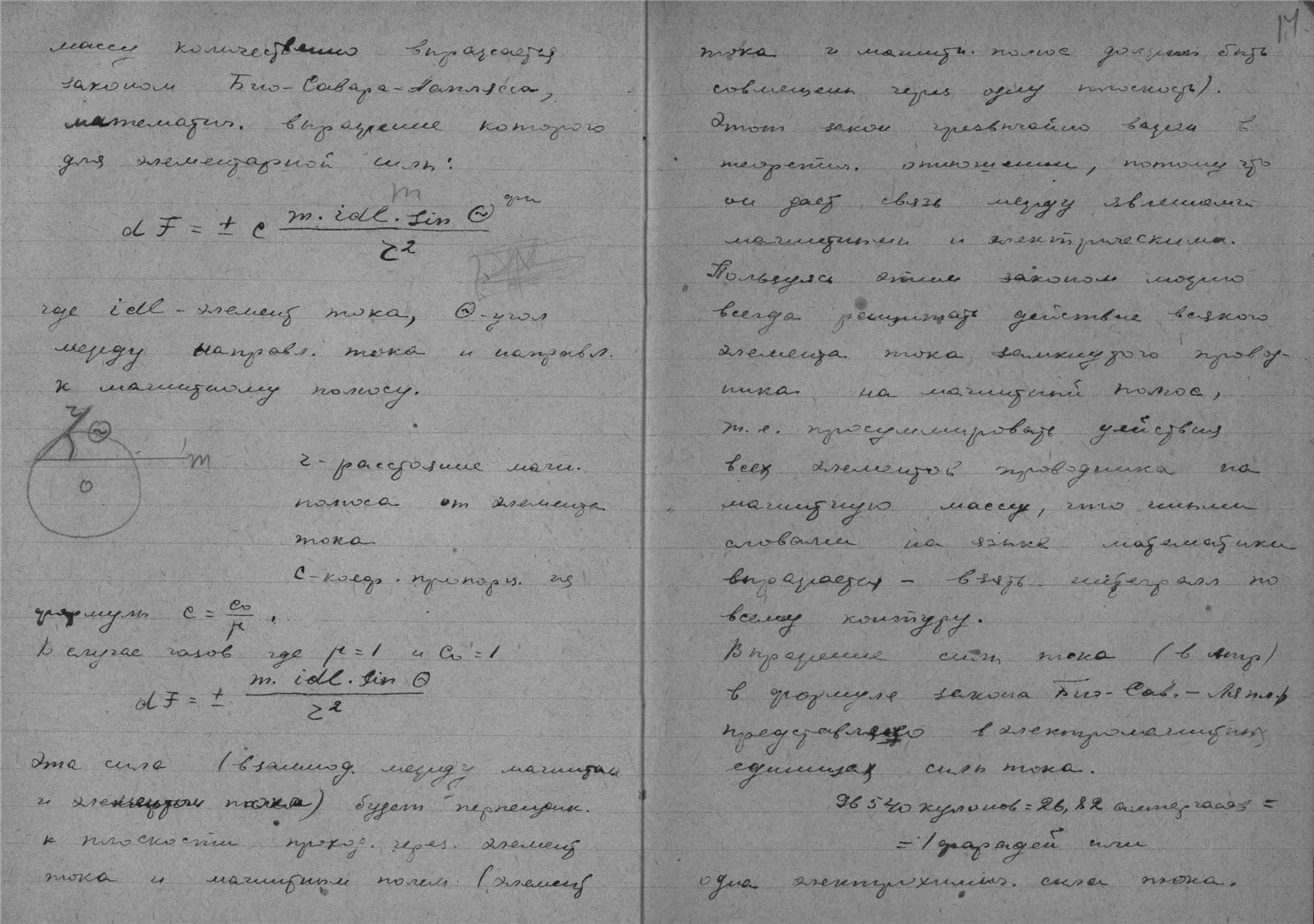 массу количественно выражается
законом Био-Савара-Лапласа,
математич. выражение которого
для элементарной силы:
m
dF = ± c m. idl. sin Θ / r² дин
где idl - элемент тока, Θ-угол
между направл. тока и направл.
к магнитному полюсу.
r Θ
m
O
r - расстояние магн.
полюса от элемента
тока
C-коэф. пропорц. из
формулы c = c₀/μ.
В случае газов где μ=1 и C₀=1
dF = ± m. idl. sin Θ / r²
Эта сила (взаимод. между магнитом
и элементом тока) будет перпендик.
к плоскости проход. через элемент
тока и магнитным полем (элемент
17.
тока и магнитн. полюс должны быть
совмещены через одну плоскость).
Этот закон чрезвычайно важен в
теоретич. отношении, потому что
он дает связь между явлениями
магнитными и электрическими.
Пользуясь этим законом можно
всегда расчитать действие всякого
элемента тока замкнутого провод-
ника на магнитный полюс,
т.е. просуммировать действия
всех элементов проводника на
магнитную массу, что иными
словами на языке математики
выражается - взять интеграл по
всему контуру.
Выражение силы тока (в амп)
в формуле закона Био-Сав.-Ляпл.
представлено в электромагнитных
единицах силы тока.
96540 кулонов = 26,82 амперчасов =
= 1 фарадей или
одна электрохимич. сила тока.